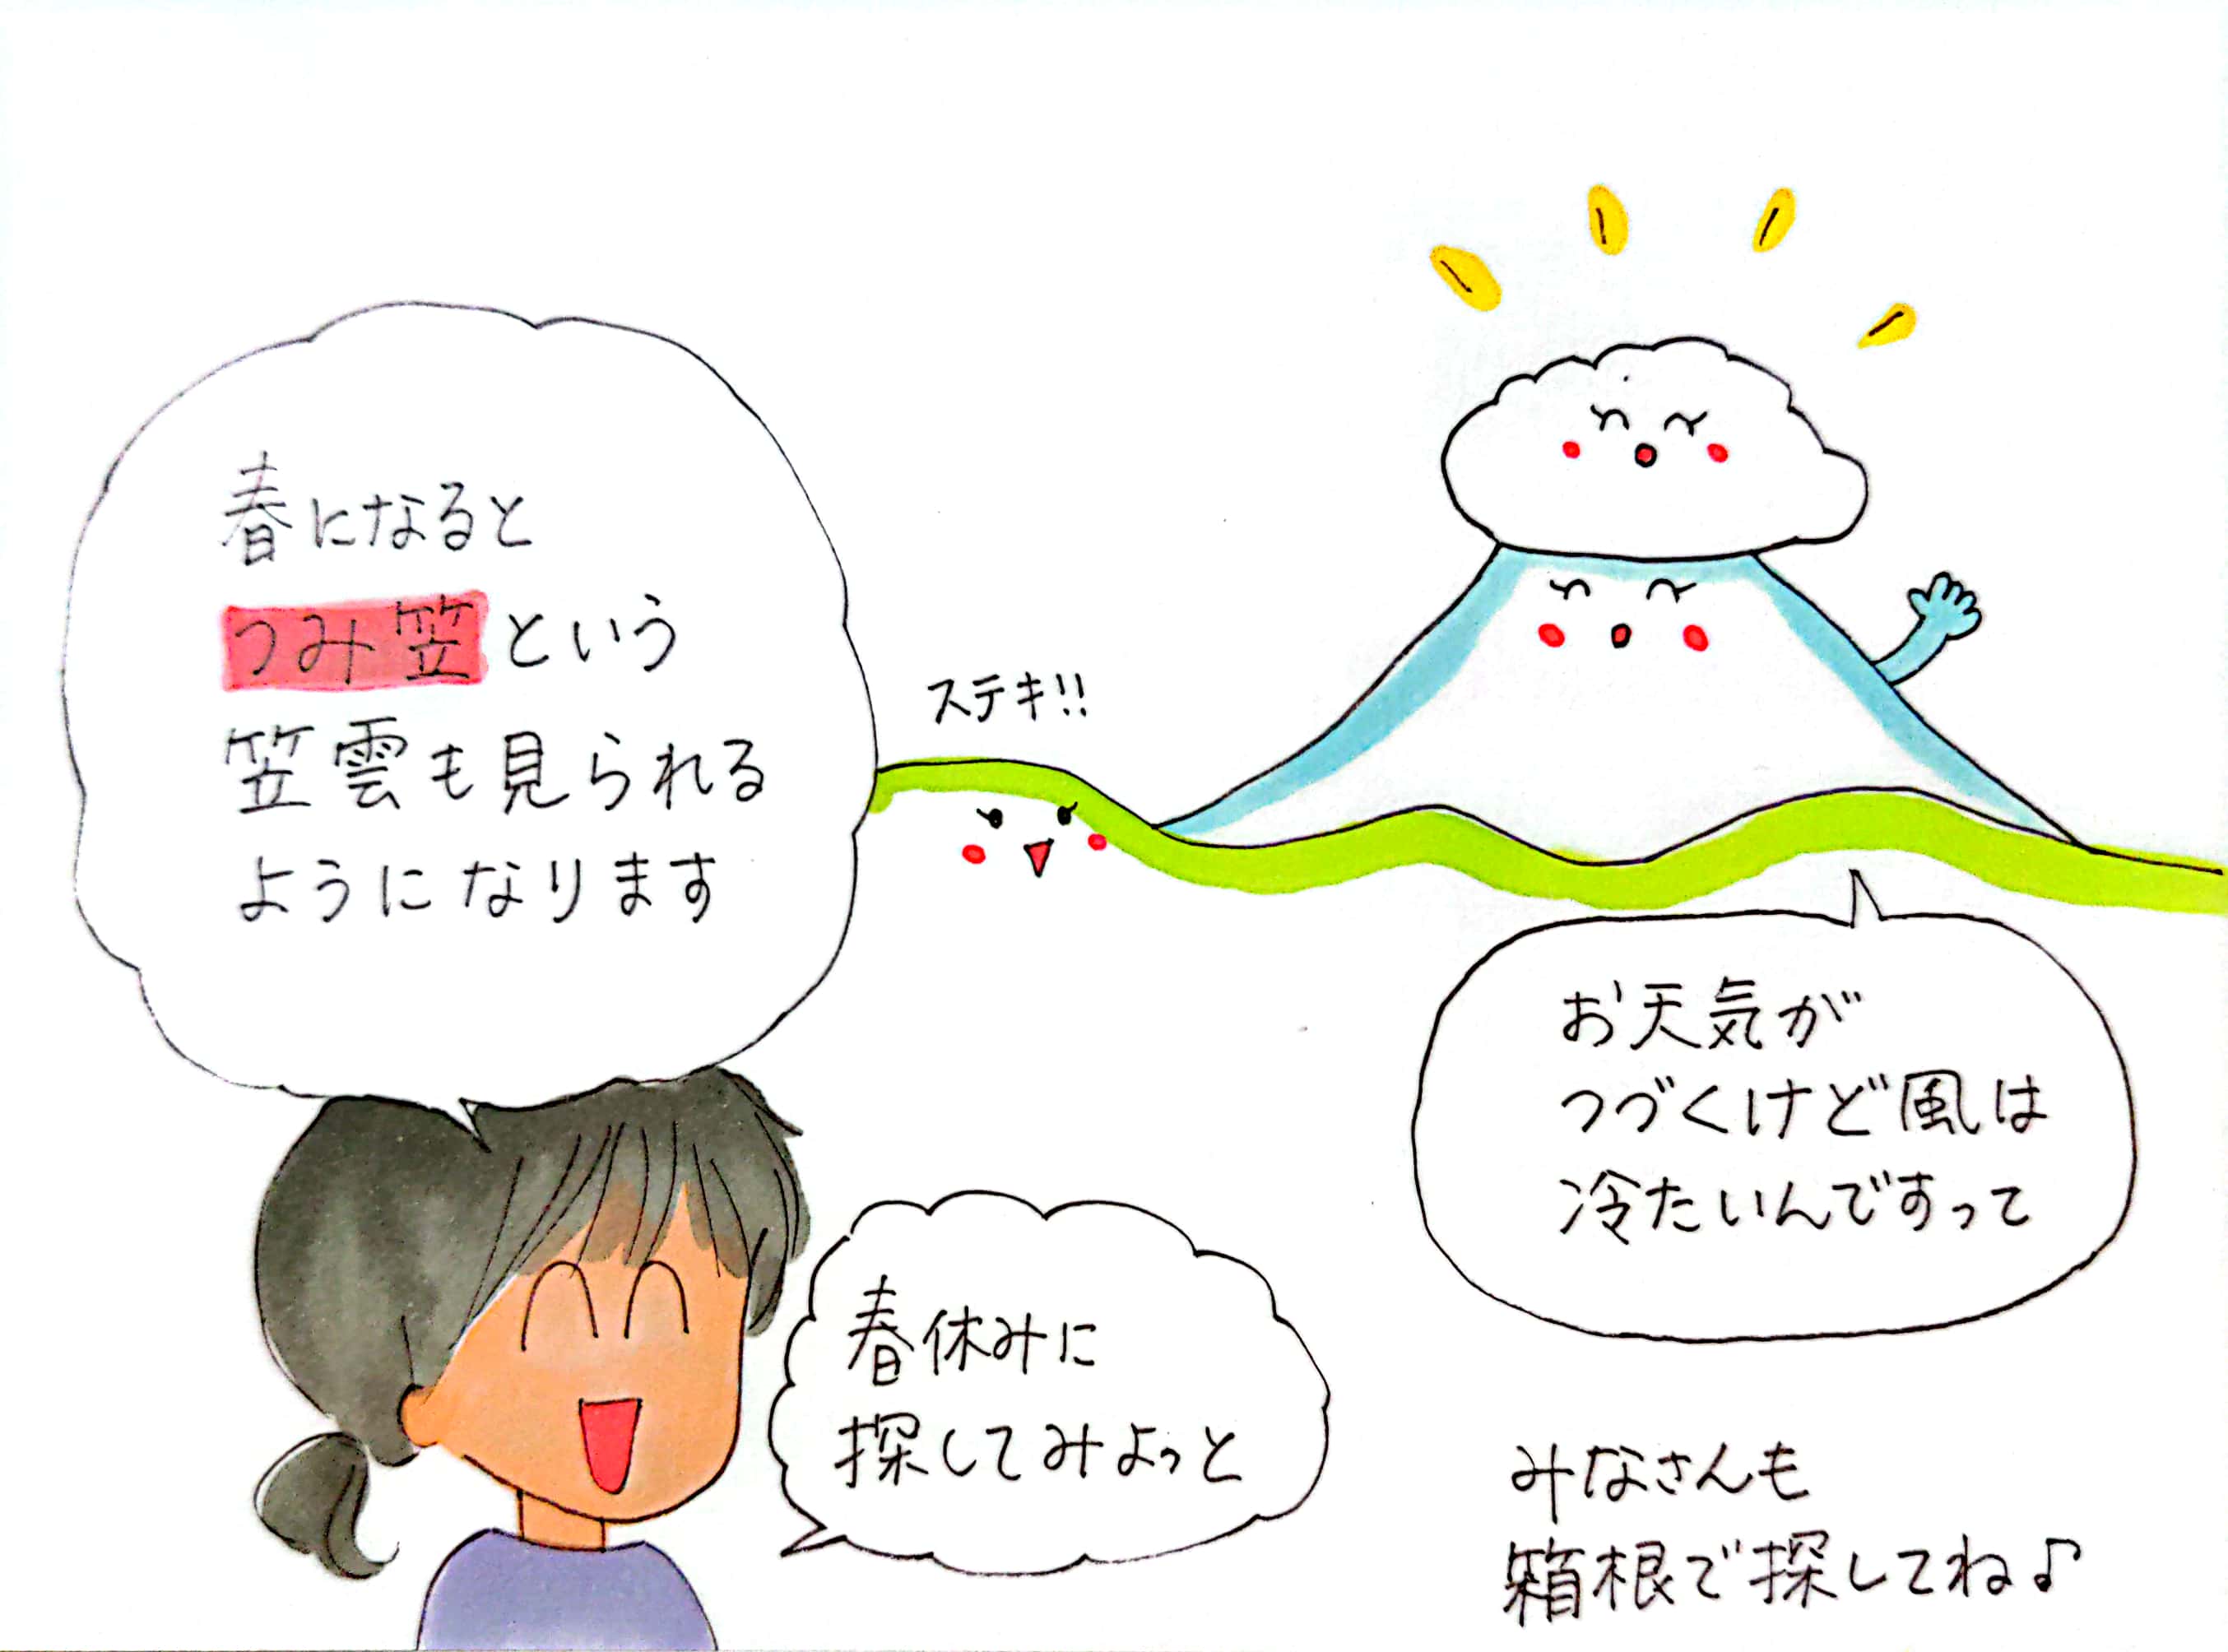 春になると
つみ笠という
笠雲も見られる
ようになります
ステキ!!
お天気が
つづくけど風は
冷たいんですって
春休みに
探してみよっと
みなさんも
箱根で探してね♪